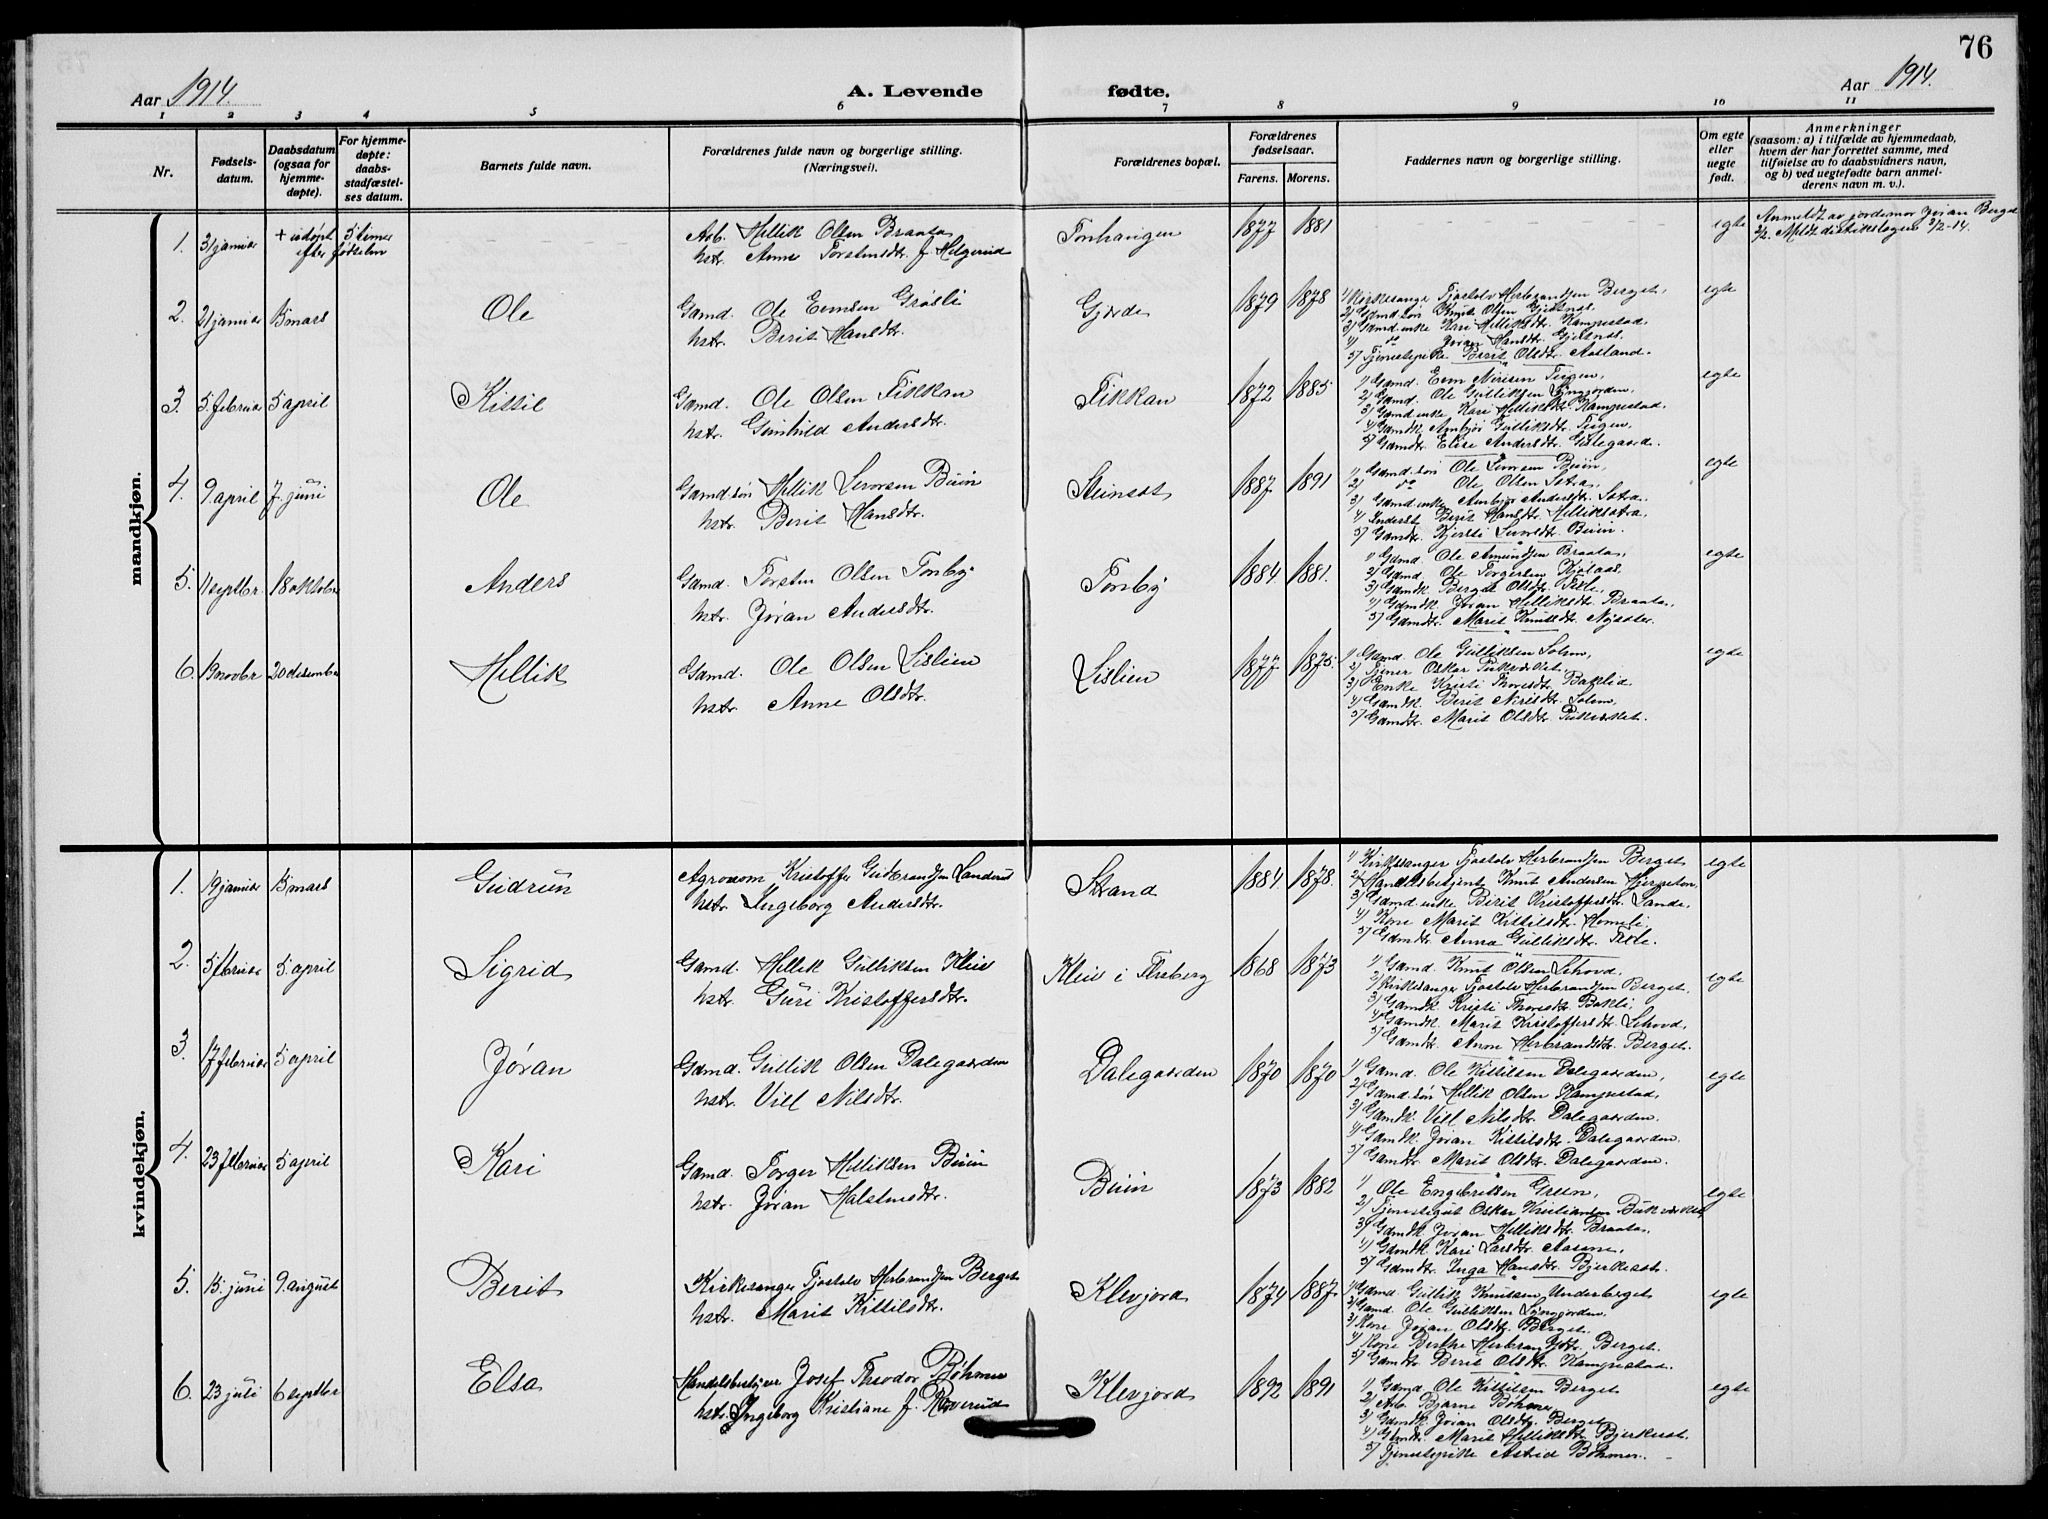 76
Aar 1914.
A. Levende fødte.
Aar 1914.
1 2 3 4 5 6 7 8 9 10 11
Nr.
Fødsels-
datum.
Daabsdatum
(ogsaa for
hjemme-
døpte).
For hjemme-
døpte:
daabs-
stadfæstel-
ses datum.
Barnets fulde navn.
Forældrenes fulde navn og borgerlige stilling.
(Næringsvei).
Forældrenes bopæl.
Forældrenes
fødselsaar.
Farens. Morens.
Faddernes navn og borgerlige stilling.
Om egte
eller
uegte
født.
Anmerkninger
(saasom: a) i tilfælde av hjemmedaab,
hvem der har forrettet samme, med
tilføielse av to daabsvidners navn,
og b) ved uegtefødte barn anmel-
derens navn m. v.).
mandkjøn.
1. 31 januar + udøpt 5 timer
efter fødselen
Arb. Hellik Olsen Braata
hstr. Anne Torstensdtr. f. Helgerud
1877 1881
egte
Anmeldt av jordemor Jøran Berget
2/2. Meldt distriktslægen 3/2-14.
2. 21 januar 15 mars
Ole
Gamd. Ole Evensen Grøsli
hstr. Berit Hansdtr.
Gjerde
1879 1878
1) Kirkesanger Tjostolv Herbrandsen Berget,
2) Gamd. søn Knut Olsen
3) Gamd. enke Kari Helliksdtr. Kampestad,
4) do Jøran Hansdtr.
5) Tjenestepike Berit Olsdtr. Aasland.
egte
3. 5. februar 5 april
Kittil
Gamd. Ole Olsen Fikkan
hstr. Gunhild Andersdtr.
Fikkan
1872 1885
1) Gamd. Even Nirisen Teigen,
2) Gamd. Ole Gulliksen Lyngjorden,
3) Gamd. enke Kari Helliksdtr. Kampestad,
4) Gamdk. Ambjør Gulliksdtr. Teigen,
5) Gamdtr. Elise Andersdtr.
egte
4. 9. april 7. juni
Ole
Gamd. søn Hellik Levorsen Buin
hstr. Berit Hansdtr.
Steinset
1887 1891
1) Gamd. søn Ole Levorsen Buin,
2) do Ole Olsen Sætra,
3) Gamd. enke Ambjør Andersdtr. Sætra,
4) Inderst Berit Hansdtr. Helliksætra,
5) Gamdtr. Kjersti Levorsdtr. Buin.
egte
5. 11 septbr. 18 oktober
Anders
Gamd. Torsten Olsen Tonby
hstr. Jøran Andersdtr.
Tonby
1884. 1881.
1) Gamd. Ole Amundsen Braata,
2) Gamd. Ole Torgersen
3) Gamdk. Bergit Olsdtr.
4) Gamdk. Jøran Helliksdtr. Braata,
5) Gamdtr. Marit Knutsdtr.
egte
6. 19 novbr 20 desember
Hellik
Gamd. Ole Olsen Lislien
hstr. Anne Olsdtr.
Lislien
1877 1875.
1) Gamd. Ole Gulliksen Solem,
2) Tjener Oskar
3) Enke Kristi Thoresdtr. Baklid
4) Gamdk. Berit Nirisdtr. Solem,
5) Gamdtr. Marit Olsdtr.
egte
kvindekjøn.
1. 19 januar 15 mars
Gudrun
Agronom Kristoffer Gudbrandsen Landerud
hstr. Ingeborg Andersdtr.
Strand
1884. 1878.
1) Kirkesanger Tjostolv Herbrandsen Berget
2) Handelsbetjent Knut Andersen
3) Gamd. enke Berit Kristoffersdtr. Lande,
4) Kone Marit Kittilsdtr. Homeli,
5) Gamdtr. Anna Gulliksdtr.
egte
2. 5 februar 5. april
Sigrid
Gamd. Hellik Gulliksen Kleiv
hstr. Guri Kristoffersdtr.
Kleiv i Flesberg
1868 1873
1) Gamd. Knut Olsen Lehovd,
2) Kirkesanger Tjostolv Herbrandsen Berget.
3) Gamdk. Kristi Thoresdtr. Bakli,
4) Gamdk. Marit Kristoffersdtr. Lehovd,
5) Gamdtr. Anne Herbrandsdtr. Berget.
egte
3. 17 februar 5 april
Jøran
Gamd. Gullik Olsen Dalegaarden
hstr. Vill Nilsdtr.
Dalegaarden
1870 1870
1) Gamd. Ole Kittilsen Dalegaarden,
2) Gamd. søn Hellik Olsen Kampestad,
3) Gamdk. Vill Nilsdtr. Dalegaarden.
4) Gamdk. Jøran Kittilsdtr. Dalegaarden.
5) Gamdtr. Marit Olsdtr. Dalegaarden.
egte
4. 23 februar 5 april
Kari
Gamd. Torger Helliksen Buin
hstr. Jøran Halstensdtr.
Buin
1873 1882
1) Ole Engebretsen Green,
2) Tjenestegut Oskar Kristiansen
3) Gamdk. Jøran Helliksdtr. Braata,
4) Gamdk. Kari Larsdtr. Aasene,
5) Gamdtr. Inga Hansdtr. Bjerkeset.
egte
5. 15. juni 9. august
Berit
Kirkesanger Tjostolv Herbrandsen Berget
hstr. Marit Kittilsdtr.
Klevjord
1874 1887.
1) Gamd. Gullik Knutsen Underberget
2) Gamd. Ole Gulliksen Lyngjorden.
3) Kone Jøran Olsdtr. Berget.
4) Kone Birthe Herbrandsdtr. Berget.
5) Gamdtr. Berit Olsdtr. Kampestad.
egte
6. 23 juli 6 septbr
Elsa
Handelsbestyrer Josef Theodor Bøhmer
hstr. Ingeborg Kristiane f. Røverud
Klevjord
1892 1891
1) Gamd. Ole Kittilsen Berget
2) Arb. Bjarne Bøhmer
3) Gamdk. Jøran Olsdtr. Berget
4) Gamdk. Marit Helliksdtr. Bjerkeset.
5) Tjenestepike Astrid Bøhmer.
egte